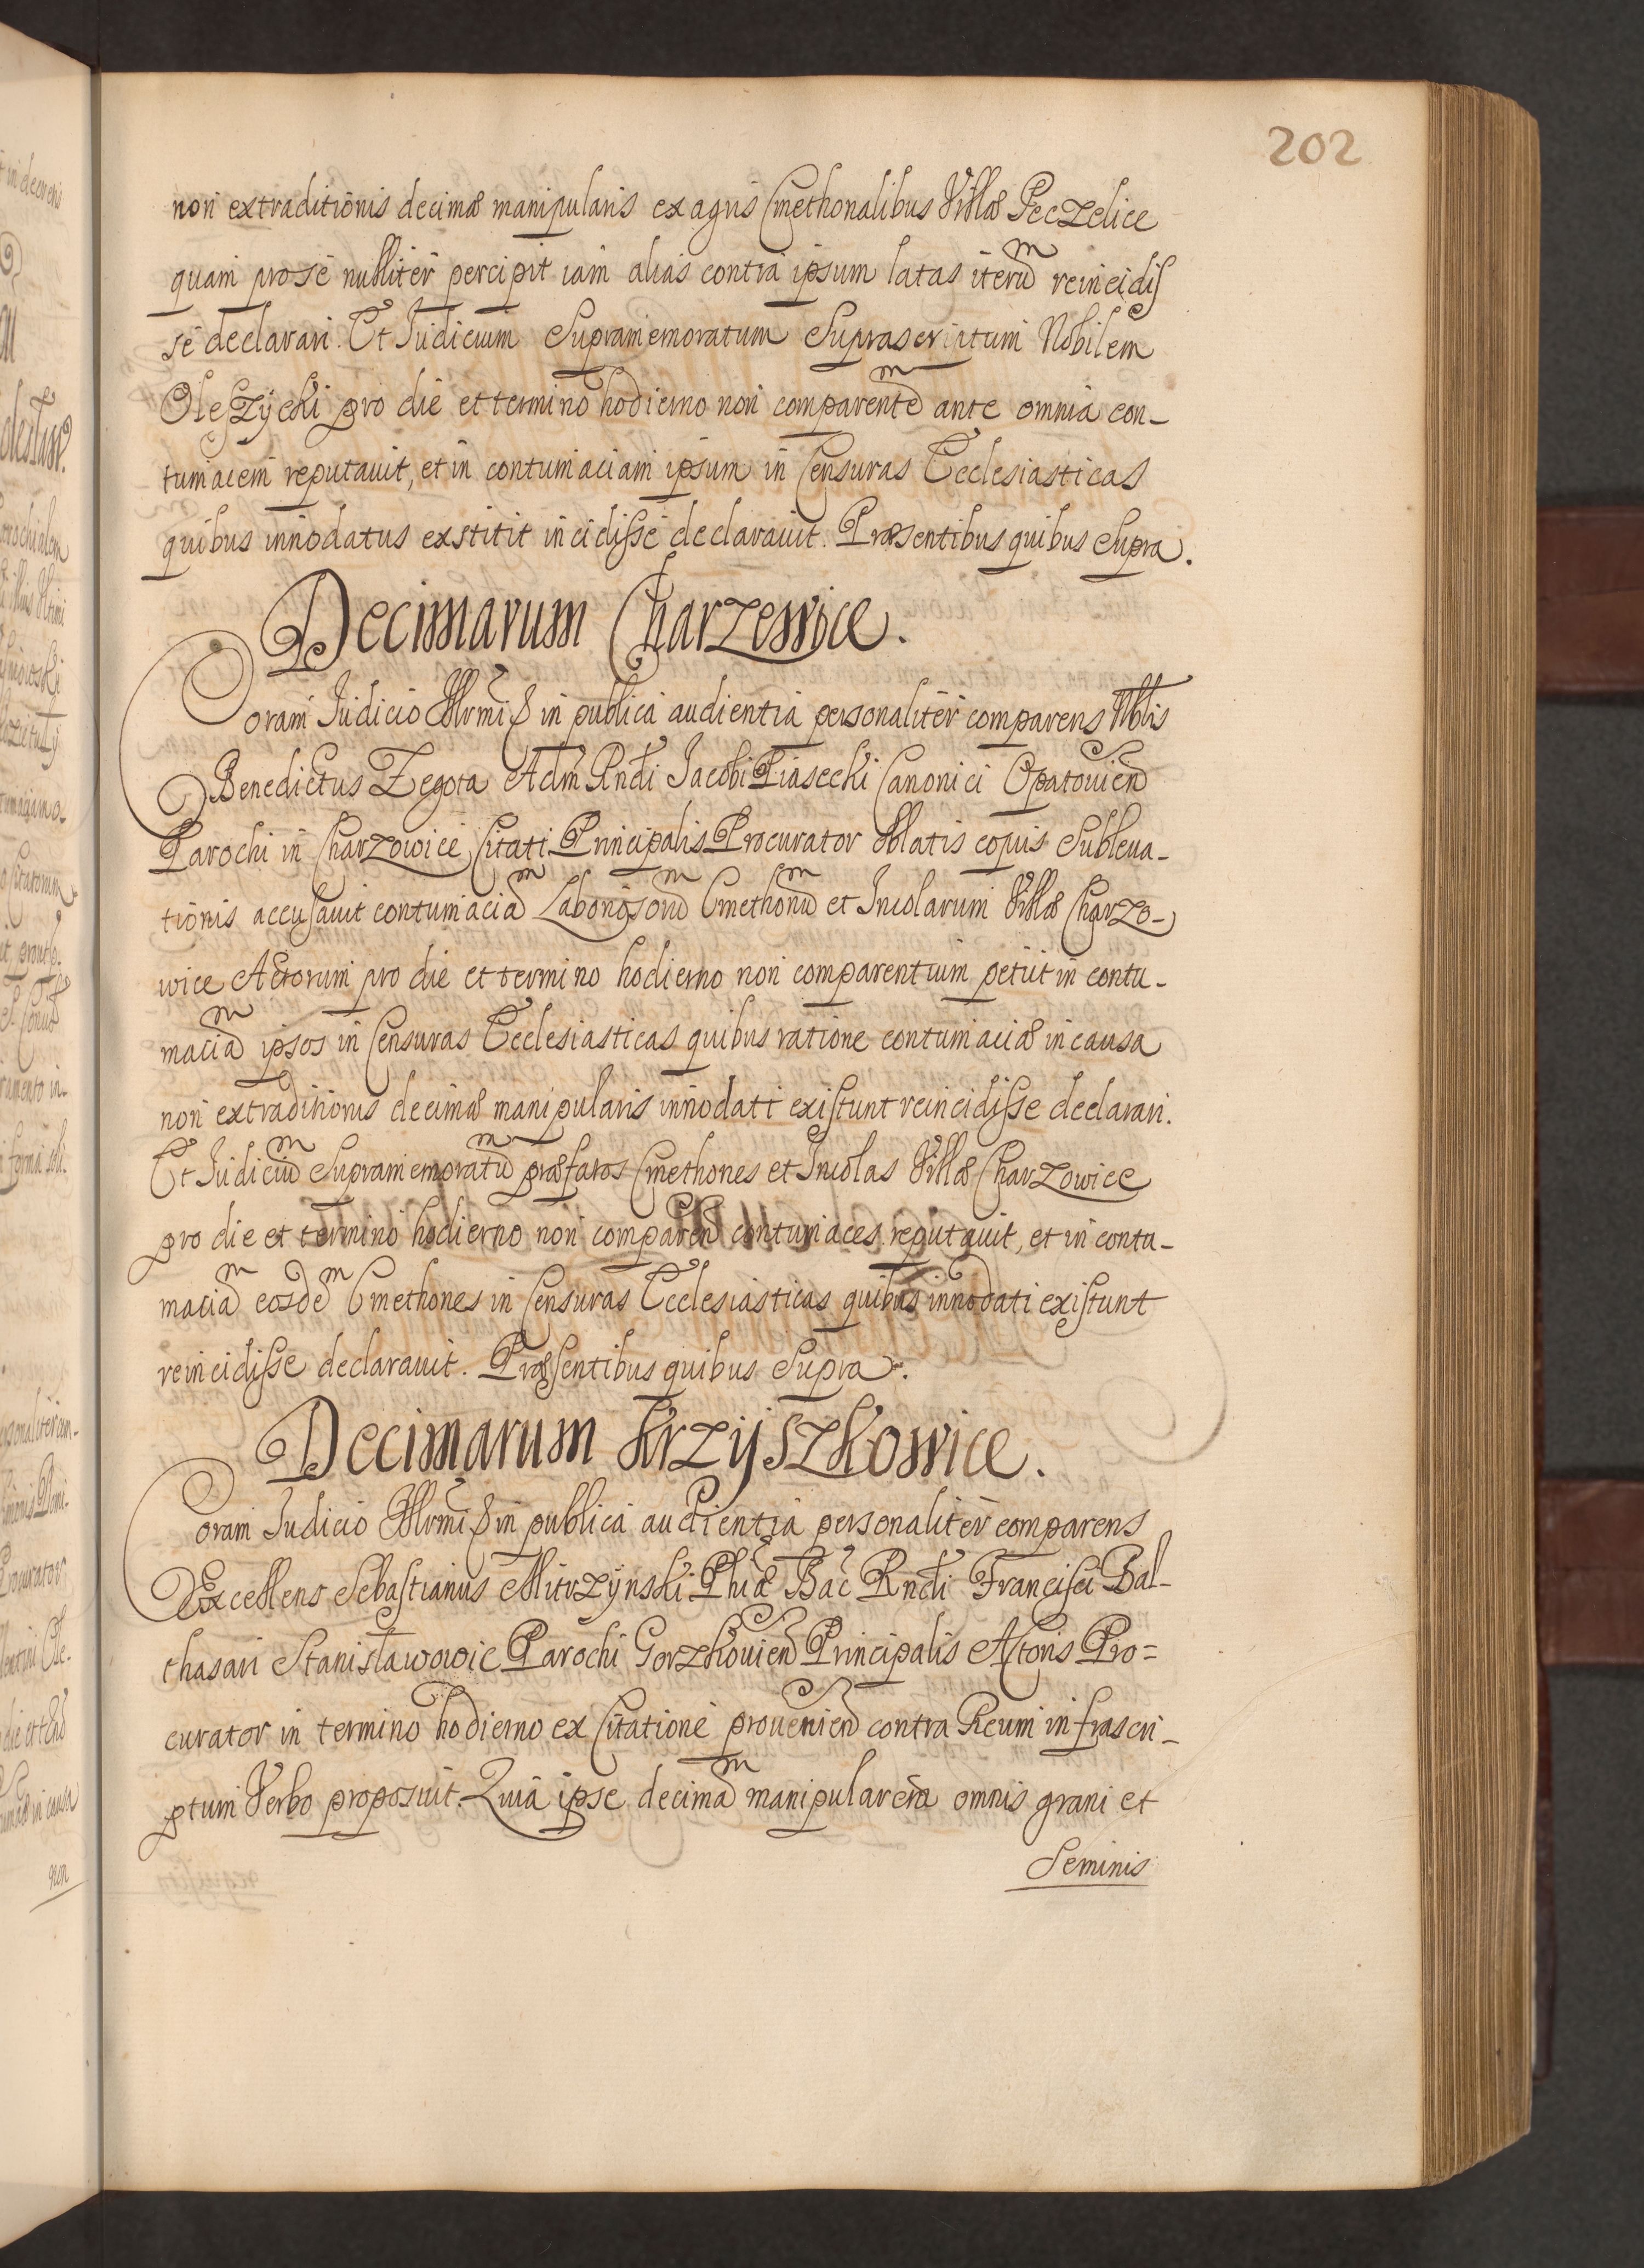 202
non extraditionis decimæ manipularis ex agris Cmethonalibus Villæ Peczelice
quam pro se nulliter percipit iam alias contra ipsum latas iterum reincidis
se declarari. Et Iudicium Supramemoratum Suprascriptum Nobilem
Oleszycki pro die et termino hodierno non comparentem ante omnia con-
tumacem reputauit, et in contumaciam ipsum in Censuras Ecclesiasticas
quibus innodatus exstitit incidisse declarauit. Præsentibus quibus Supra.
Decimarum Charzewice.
Coram Iudicio in publica audientia personaliter comparens Nblis
Benedictus Zegota Adm Rndi Jacobi Piasecki Canonici Opatouien
Parochi in Charzowice Citati Principalis Procurator Oblatis copiis Subleua-
tionis accusauit contumaciam Laboriosorum Cmethonum et Incolarum Villæ Charzo-
wice Actorum pro die et termino hodierno non comparentium petiit in contu-
maciam ipsos in Censuras Ecclesiasticas quibus ratione contumaciæ in causa
non extraditionis decimæ manipularis innodati existunt reincidisse declarari.
Et Iudicium Supramemoratum præfatos Cmethones et Incolas Villæ Charzowice
pro die et termino hodierno non comparen contumaces reputauit, et in contu-
maciam eosdem Cmethones in Censuras Ecclesiasticas quibus innodati existunt
reincidisse declarauit. Præsentibus quibus Supra.
Decimarum Krzyszkowice.
Coram Iudicio in publica audientia personaliter comparens
Excellens Sebastianus Mitrzynski Phiæ Bac Rndi Francisci Bal-
thasari Stanisławowic Parochi Gorzkouien Principalis Actoris Pro=
curator in termino hodierno ex Citatione prouenien contra Reum infrascri-
ptum Verbo proposuit. Quia ipse decimam manipularem omnis grani et
Seminis